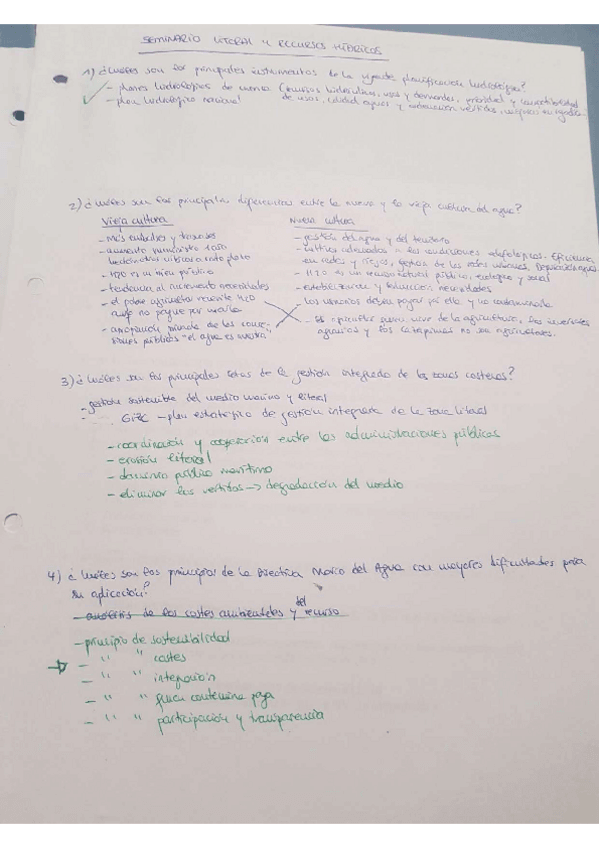 SEMINARIO LITORAL Y RECURSOS HÍDRICOS
1) ¿Cuáles son los principales instrumentos de la vigente planificación hidrológica?
- planes hidrológicos de cuenca (recursos hidráulicos, usos y demandas, prioridad y compatibilidad
- plan hidrológico nacional de usos, calidad aguas y ordenación vertidos,
2) ¿Cuáles son las principales diferencias entre la nueva y la vieja cultura del agua?
Vieja cultura Nueva cultura
- más embalses y trasvases
- aumento suministro
- H2O es un bien público
- tendencia al incremento necesidades
- el pobre agricultor necesita H2O
aunq no pague por usarla
- públicos "el agua es nuestra"
- gestión del agua y del territorio
- cultivos adecuados a las condiciones edafológicas. Eficiencia
en redes y riegos, gestión de las redes urbanas, Depuración aguas
- H2O es un recurso natural público, ecológico y social
- estabilización y reducción necesidades
- Los usuarios deben pagar por ello y no contaminarla
- El agricultor suele vivir de la agricultura, los invernales
agrarios y los no son agricultores.
3) ¿Cuáles son los principales retos de la gestión integrada de las zonas costeras?
- gestión sostenible del medio marino y litoral
- GIZC - plan estratégico de gestión integrada de la zona litoral
- coordinación y cooperación entre las administraciones públicas
- erosión litoral
- dominio público marítimo
- eliminar los vertidos → degradación del medio
4) ¿Cuáles son los principios de la Directiva Marco del Agua con mayores dificultades para
su aplicación?
- análisis de los costes ambientales y del recurso
- principio de sostenibilidad
- " " costes
- " " integración
- " " quien contamina paga
- " " participación y transparencia